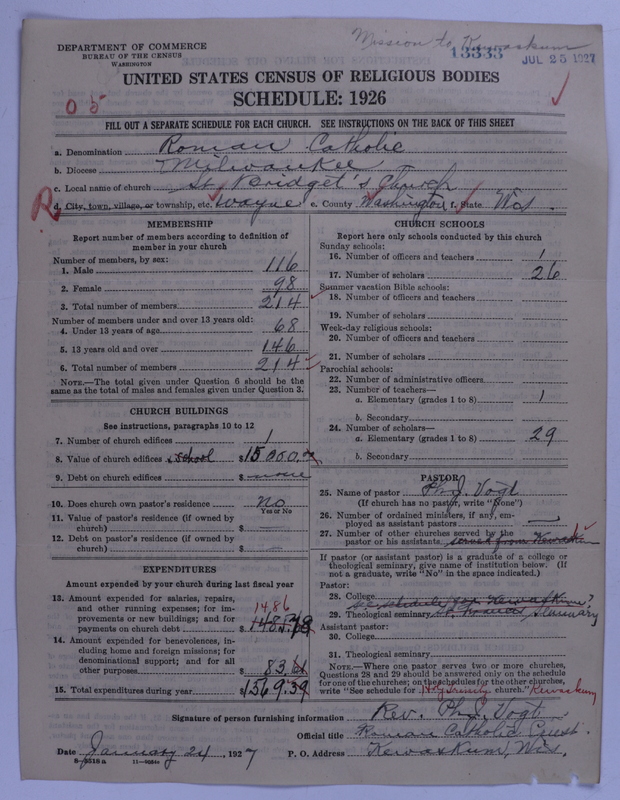 Mission to Kewaskum
DEPARTMENT OF COMMERCE
BUREAU OF THE CENSUS
WASHINGTON
13333
JUL 25 1927
UNITED STATES CENSUS OF RELIGIOUS BODIES
SCHEDULE: 1926
05
FILL OUT A SEPARATE SCHEDULE FOR EACH CHURCH. SEE INSTRUCTIONS ON THE BACK OF THIS SHEET
a. Denomination Roman Catholic
b. Diocese Milwaukee
c. Local name of church St. Bridget's Church
R
d. City, town, village, or township, etc. Wayne e. County Washington f. State Wis.
MEMBERSHIP
Report number of members according to definition of
member in your church
Number of members, by sex:
1. Male 116
2. Female 98
3. Total number of members 214
Number of members under and over 13 years old:
4. Under 13 years of age 68
5. 13 years old and over 146
6. Total number of members 214
NOTE.—The total given under Question 6 should be the
same as the total of males and females given under Question 3.
CHURCH BUILDINGS
See instructions, paragraphs 10 to 12
7. Number of church edifices 1
8. Value of church edifices school $15,000.00
9. Debt on church edifices $ none
10. Does church own pastor's residence No
Yes or No
11. Value of pastor's residence (if owned by
church) $
12. Debt on pastor's residence (if owned by
church) $
EXPENDITURES
Amount expended by your church during last fiscal year
13. Amount expended for salaries, repairs,
and other running expenses; for im-
provements or new buildings; and for
payments on church debt $ 1485.78
1486
14. Amount expended for benevolences, in-
cluding home and foreign missions; for
denominational support; and for all
other purposes 83.61
15. Total expenditures during year $1569.39
CHURCH SCHOOLS
Report here only schools conducted by this church
Sunday schools:
16. Number of officers and teachers 1
17. Number of scholars 26
Summer vacation Bible schools:
18. Number of officers and teachers
19. Number of scholars
Week-day religious schools:
20. Number of officers and teachers
21. Number of scholars
Parochial schools:
22. Number of administrative officers
23. Number of teachers—
a. Elementary (grades 1 to 8) 1
b. Secondary
24. Number of scholars—
a. Elementary (grades 1 to 8) 29
b. Secondary
PASTOR
25. Name of pastor Ph. J. Vogt
(If church has no pastor, write "None")
26. Number of ordained ministers, if any, em-
ployed as assistant pastors —
27. Number of other churches served by the
pastor or his assistants served from Kewaskum
If pastor (or assistant pastor) is a graduate of a college or
theological seminary, give name of institution below. (If
not a graduate, write "No" in the space indicated.)
Pastor:
28. College see schedule for Kewaskum?
29. Theological seminary St. Francis Seminary
Assistant pastor:
30. College
31. Theological seminary
NOTE.—Where one pastor serves two or more churches,
Questions 28 and 29 should be answered only on the schedule
for one of the churches; on the schedules for the other churches,
write "See schedule for Holy Trinity church." Kewaskum
Signature of person furnishing information Rev. Ph. J. Vogt
Official title Roman Catholic Priest.
Date January 24, 1927 P. O. Address Kewaskum, Wis.
8—3318a 11—9684